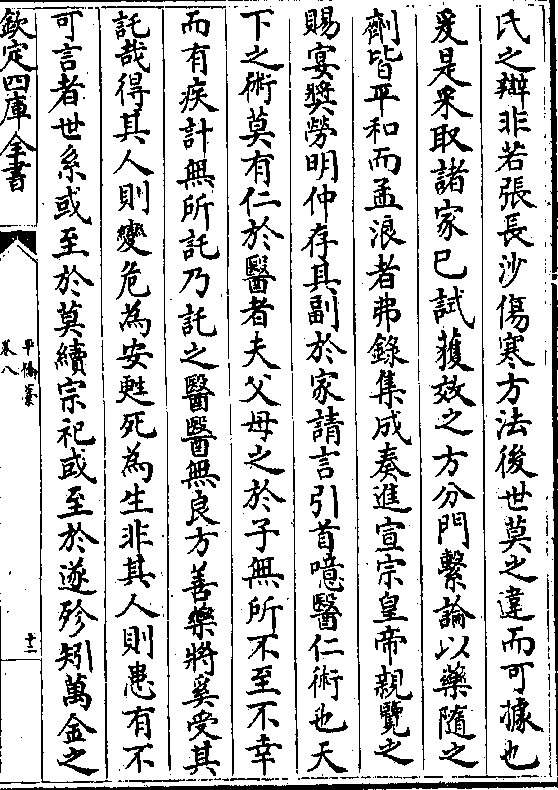 氏之辯非若張長沙傷寒方法後世莫之違而可據也
爰是采取諸家已試獲效之方分門繫論以藥隨之
劑皆平和而孟浪者弗錄集成奏進宣宗皇帝親覽之
賜宴獎勞明仲存其副於家請言引首噫醫仁術也天
下之術莫有仁於醫者夫父母之於子無所不至不幸
而有疾計無所託乃託之醫醫無良方善藥將奚受其
託哉得其人則變危為安甦死為生非其人則患有不
可言者世系或至於莫續宗祀或至於遂殄矧萬金之
欽定四庫全書
平橋藁
卷八
十二